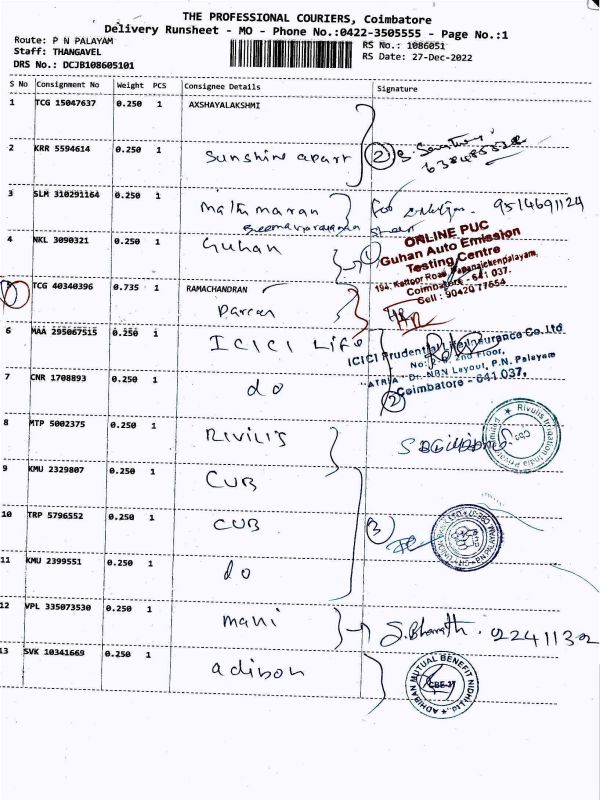 THE PROFESSIONAL COURIERS, Coimbatore
Delivery Runsheet - MO - Phone No.:0422-3505555 - Page No.:1
Route: P N PALAYAM
RS No.: 1086051
Staff: THANGAVEL
RS Date: 27-Dec-2022
DRS No.: DCJB108605101
S No Consignment No Weight PCS Consignee Details Signature
1 TCG 15047637 0.250 1 AXSHAYALAKSHMI
2 KRR 5594614 0.250 1 Sunshine apart 2
3 SLM 310291164 0.250 1 Mathimaran 9514691124
4 NKL 3090321 0.250 1 Guhan 1
ONLINE PUC
Guhan Auto Emission
Testing Centre
194, Kattoor Road, Papanaickenpalayam,
Coimbatore - 641 037.
Cell : 90420 77654
5 TCG 40340396 0.735 1 RAMACHANDRAN
Parcel
6 MAA 295067515 0.250 1 ICICI Life
ICICI Prudential Life Insurance Co.Ltd
2nd Floor,
"ATRIA" Dr. NBN Layout, P.N. Palayam
Coimbatore - 641 037.
7 CNR 1708893 0.250 1 do 2
8 MTP 5002375 0.250 1 RIVILIS
Rivulis Irrigation India Private Limited
CBE
9 KMU 2329807 0.250 1 CUB
10 TRP 5796552 0.250 1 CUB 3
11 KMU 2399551 0.250 1 do
12 VPL 335073530 0.250 1 mani S. Bharath.
13 SVK 10341669 0.250 1 adison
ADHIBAN MUTUAL BENEFIT NIDHI Ltd.
CBE-37